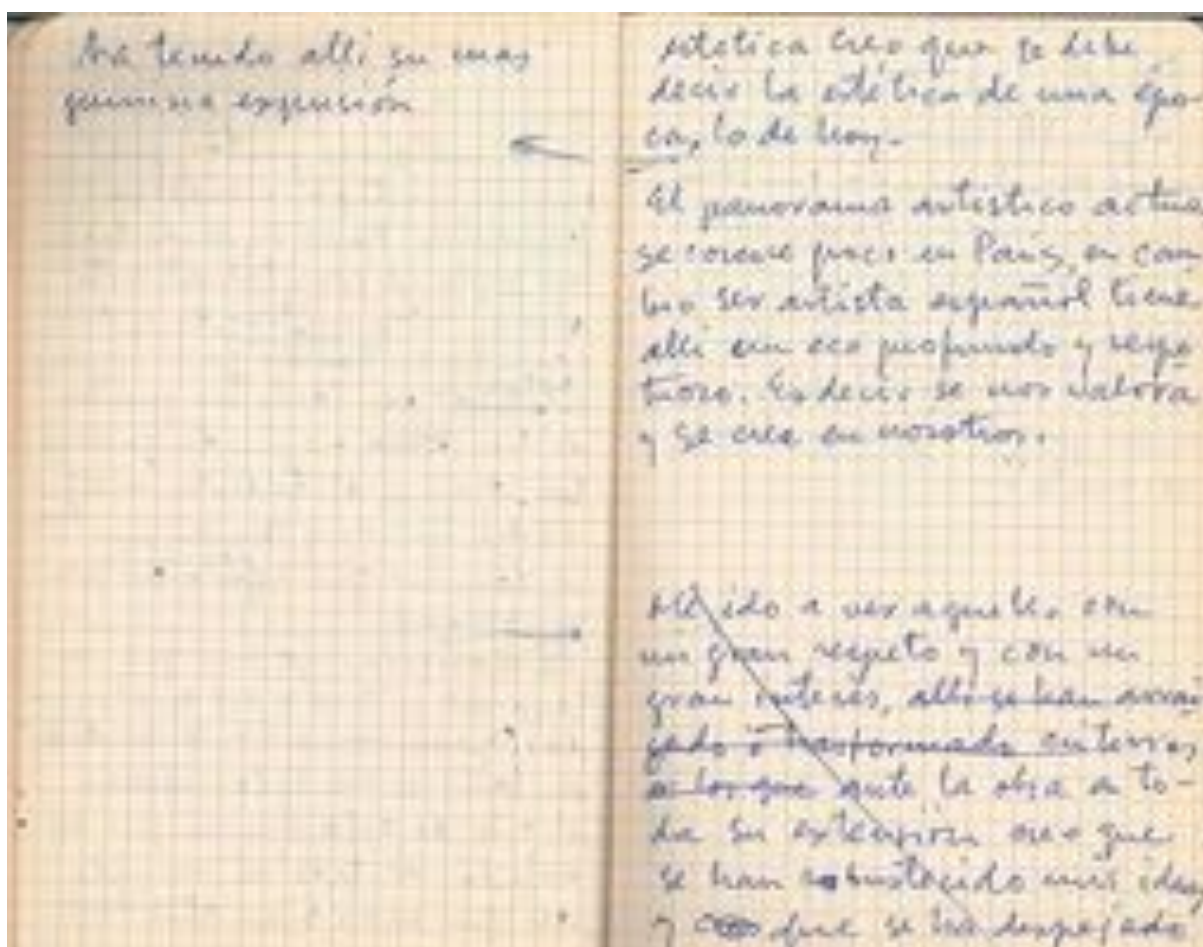 ha tenido alli su mas
genuina expresión
estetica creo que se debe
decir la estética de una épo-
ca, la de hoy.-
El panorama artistico actua
se conoce poco en Paris, en cam
bio ser artista español tiene
alli un eco profundo y respe
tuoso. Es decir se nos valora
y se cree en nosotros.
He ido a ver aquello con
un gran respeto y con un
gran interés, alli se han arrai
gado o trasformado criterios
a los que ante la obra en to-
da su extensión creo que
se han robustecido mis ideas
y que se ha despejado